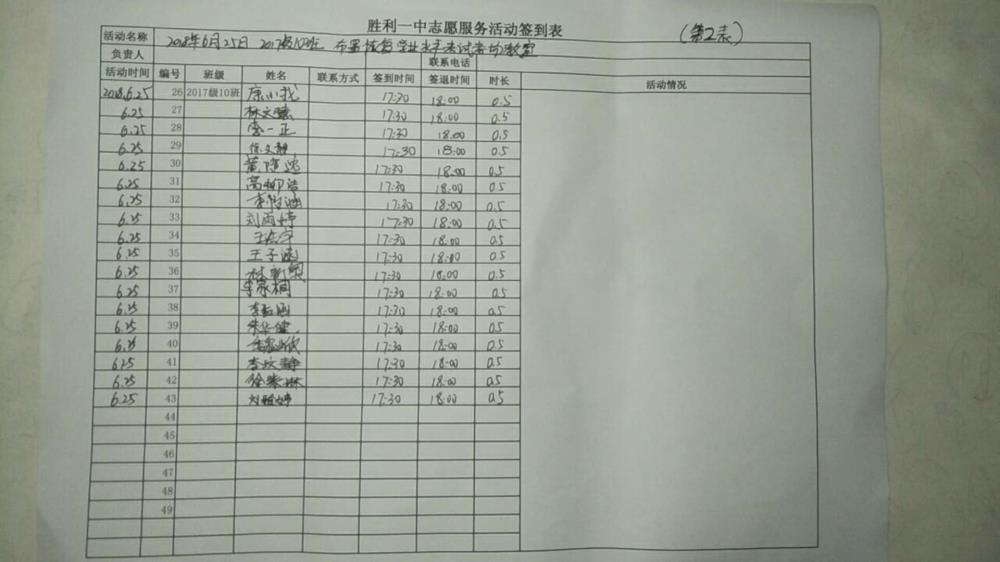 胜利一中志愿服务活动签到表
(第2表)
活动名称 2018年6月25日 2017级10班 布置恢复学业水平考试考场教室
负责人 联系电话
活动时间 编号 班级 姓名 联系方式 签到时间 签退时间 时长 活动情况
2018.6.25 26 2017级10班 17:30 18:00 0.5
6.25 27 林文 17:30 18:00 0.5
6.25 28 李一正 17:30 18:00 0.5
6.25 29 徐文静 17:30 18:00 0.5
6.25 30 黄 17:30 18:00 0.5
6.25 31 高柳浩 17:30 18:00 0.5
6.25 32 李怡涵 17:30 18:00 0.5
6.25 33 刘雨婷 17:30 18:00 0.5
6.25 34 17:30 18:00 0.5
6.25 35 王子涵 17:30 18:00 0.5
6.25 36 17:30 18:00 0.5
6.25 37 李家桐 17:30 18:00 0.5
6.25 38 17:30 18:00 0.5
6.25 39 朱华健 17:30 18:00 0.5
6.25 40 17:30 18:00 0.5
6.25 41 李文静 17:30 18:00 0.5
6.25 42 徐 17:30 18:00 0.5
6.25 43 刘 17:30 18:00 0.5
44
45
46
47
48
49